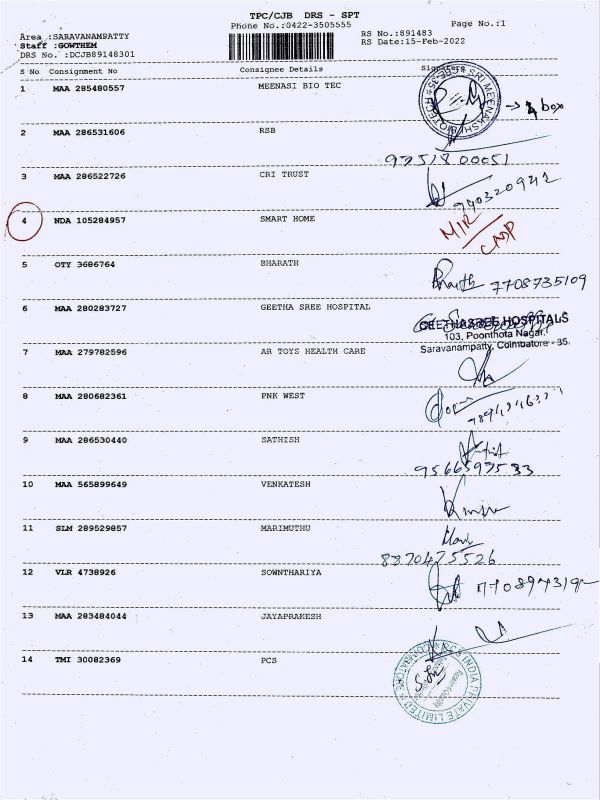 TPC/CJB DRS - SPT
Phone No.:0422-3505555
Page No.:1
Area :SARAVANAMPATTY
RS No.:891483
Staff :GOWTHEM
RS Date:15-Feb-2022
DRS No. :DCJB89148301
S No Consignment No Consignee Details Signature
1 MAA 285480557 MEENASI BIO TEC
SRI MEENAKSHI BIOTECH
box
2 MAA 286531606 RSB
97518 00051
3 MAA 286522726 CRI TRUST
4 NDA 105284957 SMART HOME
5 OTY 3686764 BHARATH
7708735109
6 MAA 280283727 GEETHA SREE HOSPITAL
GEETHASREE HOSPITALS
103, Poonthota Nagar,
Saravanampatty, Coimbatore - 35.
7 MAA 279782596 AR TOYS HEALTH CARE
8 MAA 280682361 PNK WEST
9 MAA 286530440 SATHISH
10 MAA 565899649 VENKATESH
11 SLM 289529857 MARIMUTHU
8870475526
12 VLR 4738926 SOWNTHARIYA
13 MAA 283484044 JAYAPRAKESH
14 TMI 30082369 PCS
PCS INDIA PRIVATE LIMITED